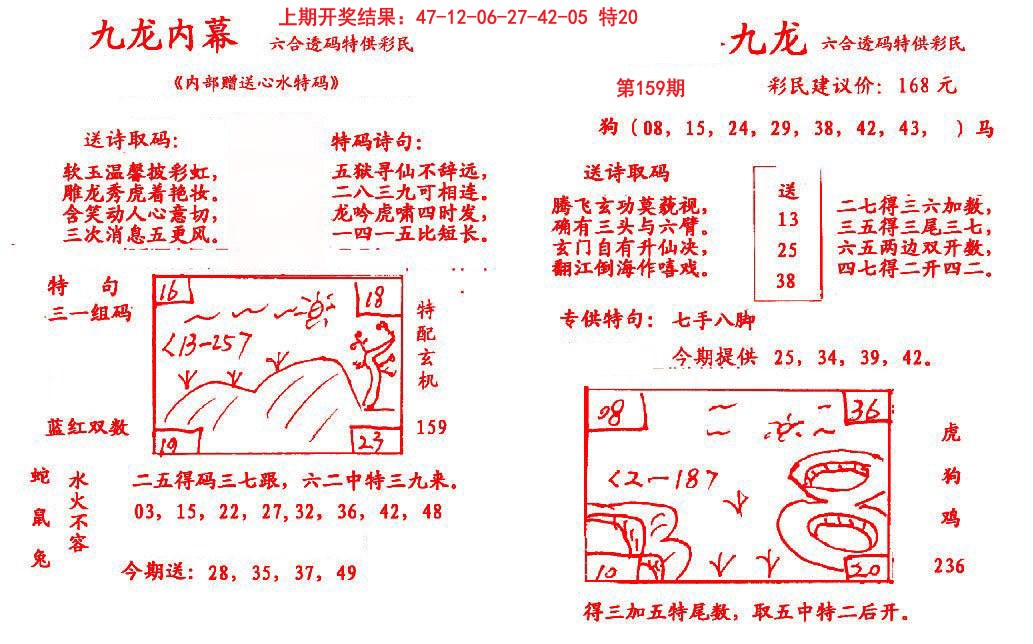 上期开奖结果：47-12-06-27-42-05 特20
九龙内幕 六合透码特供彩民
《内部赠送心水特码》
送诗取码：
软玉温馨披彩虹，
雕龙秀虎着艳妆。
含笑动人心意切，
三次消息五更风。
特码诗句：
五狱寻仙不辞远，
二八三九可相连。
龙吟虎啸四时发，
一四一五比短长。
特 句
三一组码
蓝红双数
16
18
<13-257
19
23
特配玄机
159
蛇鼠兔
水火不容
二五得码三七跟，六二中特三九来。
03，15，22，27，32，36，42，48
今期送：28，35，37，49
九龙 六合透码特供彩民
第159期
彩民建议价：168元
狗（08，15，24，29，38，42，43， ）马
送诗取码
腾飞玄功莫藐视，
确有三头与六臂。
玄门自有升仙决，
翻江倒海作嘻戏。
送
13
25
38
二七得三六加数，
三五得三尾三七，
六五两边双开数，
四七得二开四二。
专供特句：七手八脚
今期提供 25，34，39，42。
08
36
<2-187
10
20
虎
狗
鸡
236
得三加五特尾数，取五中特二后开。